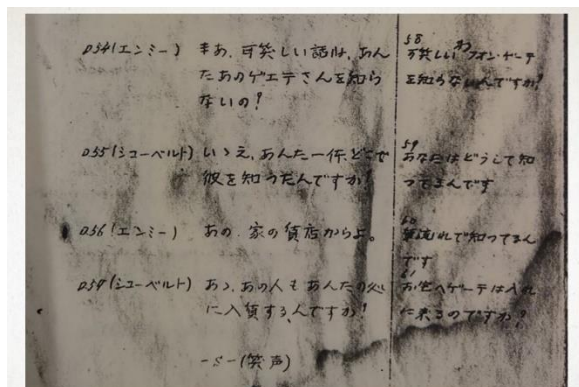 D54(エンミー) まあ、可笑しい話ね、あん
たあのゲエテさんを知ら
ないの?
D55(シューベルト) いゝえ、あんた一体、どこで
彼を知つたんですか?
D56(エンミー) あの、家の質店からよ。
D57(シューベルト) あゝ、あの人もあんたの処
に入質するんですか?
-S-(笑声)
58
可笑しいわ フオン・ゲーテ
を知らないんですか?
59
あなたはどうして知
つてまんです
60
質流れで知つてまん
です
61
お宅へゲーテは入れ
に来るのですか?